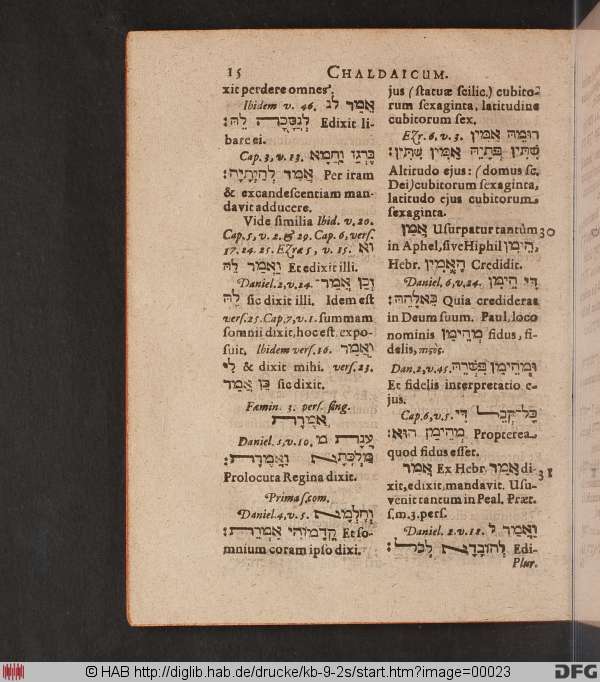 15 CHALDAICUM.
jus (ſtatuæ ſcilic.) cubito-
rum ſexaginta, latitudine
cubitorum ſex.
Ezr. 6, v. 3. רוּמֵהּ אַמִּין
שִׁתִּין פְּתָיֵהּ אַמִּין שִׁתִּין׃
Altitudo ejus: (domus ſc.
Dei) cubitorum ſexaginta,
latitudo ejus cubitorum
ſexaginta.
אֲמַן Uſurpatur tantùm 30
in Aphel, ſive Hiphil הֵימִן,
Hebr. הֶאֱמִין Credidit.
Daniel. 6, v. 24. דִּי הֵימִן
בֵּאלָהֵהּ׃ Quia crediderat
in Deum ſuum. Paul, loco
nominis מְהֵימַן fidus, fi-
delis, πιςός.
Dan. 2, v. 45. וּמְהֵימַן פִּשְׁרֵהּ
Et fidelis interpretatio e-
jus.
Cap. 6, v. 5. כָּל־קֳבֵל דִּי
מְהֵימַן הוּא׃ Propterea
quod fidus eſſet.
אֲמַר Ex Hebr. אָמַר di- 31
xit, edixit, mandavit. Uſu-
venit tantum in Peal. Præt.
ſ. m. 3. perſ.
Daniel. 2. v. 12. וַאֲמַר לְ
לְהוֹבָדָא לְכֹל׃ Edi-
xit perdere omnes.
Ibidem v. 46. אֲמַר לְנַ
לְנַסָּכָה לֵהּ׃ Edixit li-
bare ei.
Cap. 3, v. 13. בִּרְגַז וַחֲמָא
אֲמַר לְהַיְתָיָה׃ Per iram
& excandeſcentiam man-
davit adducere.
Vide ſimilia Ibid. v. 20.
Cap. 5, v. 2. & 29. Cap. 6, verſ.
17. 24. 25. Ezræ 5, v. 15. וַא
וַאֲמַר לֵהּ Et edixit illi.
Daniel. 2, v. 24. וְכֵן אֲמַר־
לֵהּ ſic dixit illi. Idem eſt
verſ. 25. Cap. 7, v. 1. ſummam
ſomnii dixit, hoc eſt, expo-
ſuit. Ibidem verſ. 16. וַאֲמַר
לִי & dixit mihi. verſ. 23.
כֵּן אֲמַר ſic dixit.
Fæmin. 3. perſ. ſing.
אֲמֶרֶת
Daniel. 5, v. 10. עֲנָת מַ
מַלְכְּתָא וַאֲמֶרֶת׃
Prolocuta Regina dixit.
Prima ſ. com.
Daniel. 4, v. 5. וְחֶלְמָא
קָדָמוֹהִי אַמְרֵת׃ Et ſo-
mnium coram ipſo dixi.
Plur.
© HAB http://diglib.hab.de/drucke/kb-9-2s/start.htm?image=00023
DFG